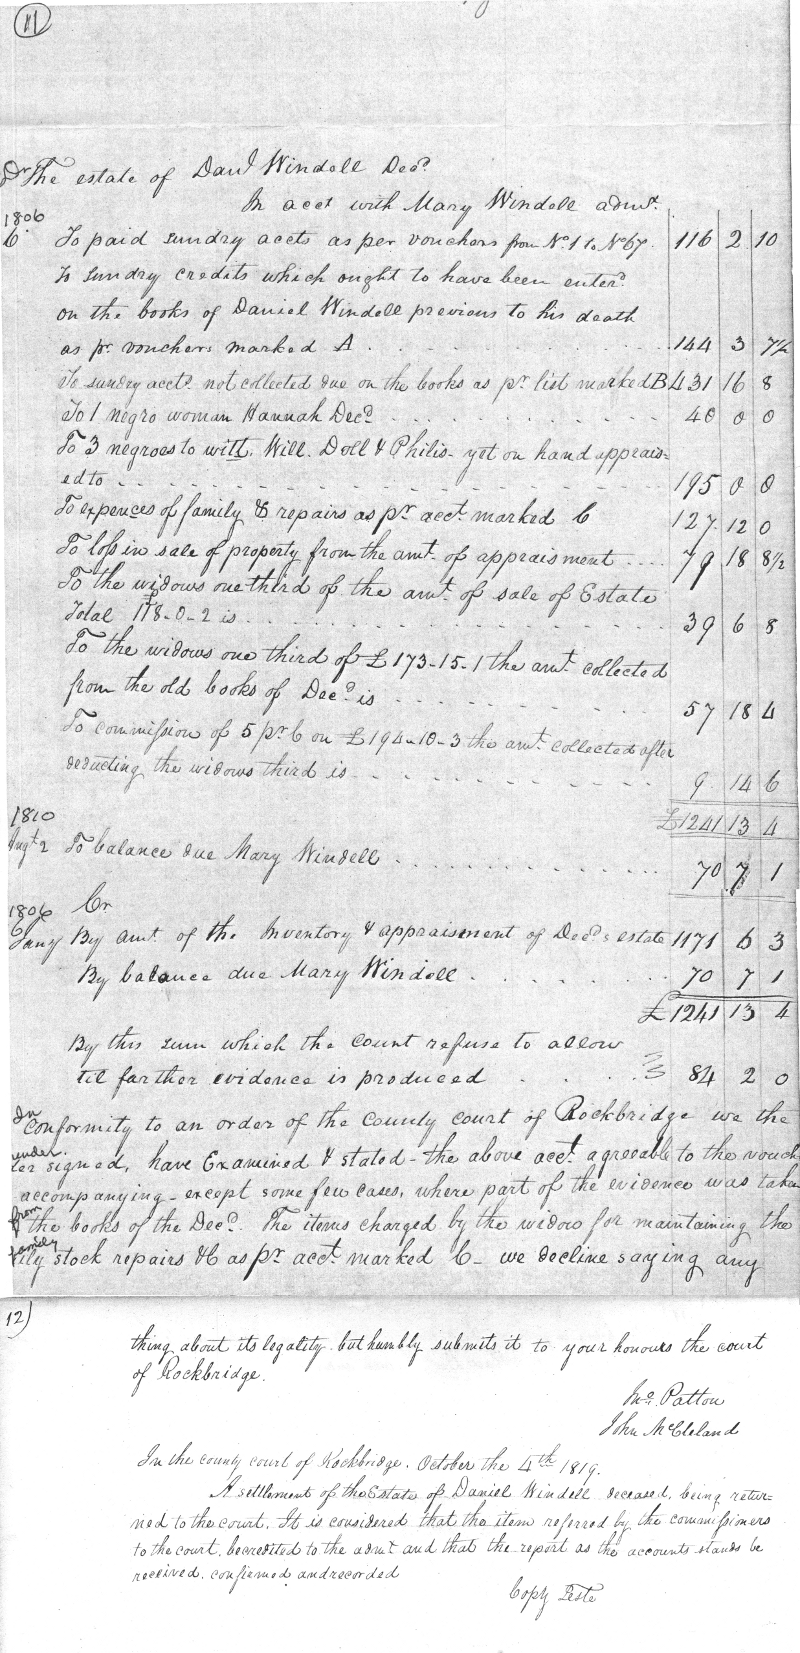 11
Dr The estate of Danl Windell Decd
In acct with Mary Windell admx.
1806
C. To paid sundry accts as per vouchers from No. 1 to No 67. 116 2 10
To sundry credits which ought to have been enterd
on the books of Daniel Windell previous to his death
as pr vouchers marked A . . . . . . . 144 3 7½
To sundry acctd not collected due on the books as pr list marked B 431 16 8
To 1 negro woman Hannah Decd . . . . . . . 40 0 0
To 3 negroes to witt, Will. Doll & Philis - yet on hand apprais=
ed to - - - - - - - 195 0 0
To expences of family & repairs as pr acct. marked C 127 12 0
To loss in sale of property from the amt. of appraisment .... 79 18 8½
To the widows one third of the amt. of sale of Estate
Total 118-0-2 is . . . . . . . 39 6 8
To the widows one third of £173-15-1 the amt collected
from the old books of Decd is . . . . . . . 57 18 4
To commission of 5 pr C on £194-10-3 the amt. collected after
deducting the widows third is - - - - - - - 9 14 6
£1241 13 4
1810
Augt 2 To balance due Mary Windell . . . . . . . 70 7 1
1806 Cr
Jany By amt. of the Inventory & appraisement of Decds estate 1171 6 3
By balance due Mary Windell . . . . . . 70 7 1
£1241 13 4
By this sum which the court refuse to allow
til farther evidence is produced . . . . 84 2 0
In conformity to an order of the county court of Rockbridge we the
under signed, have Examined & stated - the above acct. agreeable to the vouch
accompanying - except some few cases, where part of the evidence was taken
from the books of the Decd. The items charged by the widow for maintaining the
family stock repairs &C as pr acct. marked C - we decline saying any
12)
thing about its legality but humbly submits it to your honours the court
of Rockbridge.
Jno. Patton
John McCleland
In the county court of Rockbridge. October the 4th 1819.
A settlement of the Estate of Daniel Windell deceased, being retur=
ned to the court, It is considered that the item referred by the commissioners
to the court, be credited to the admt and that the report as the accounts stands be
received, confirmed and recorded
Copy Teste